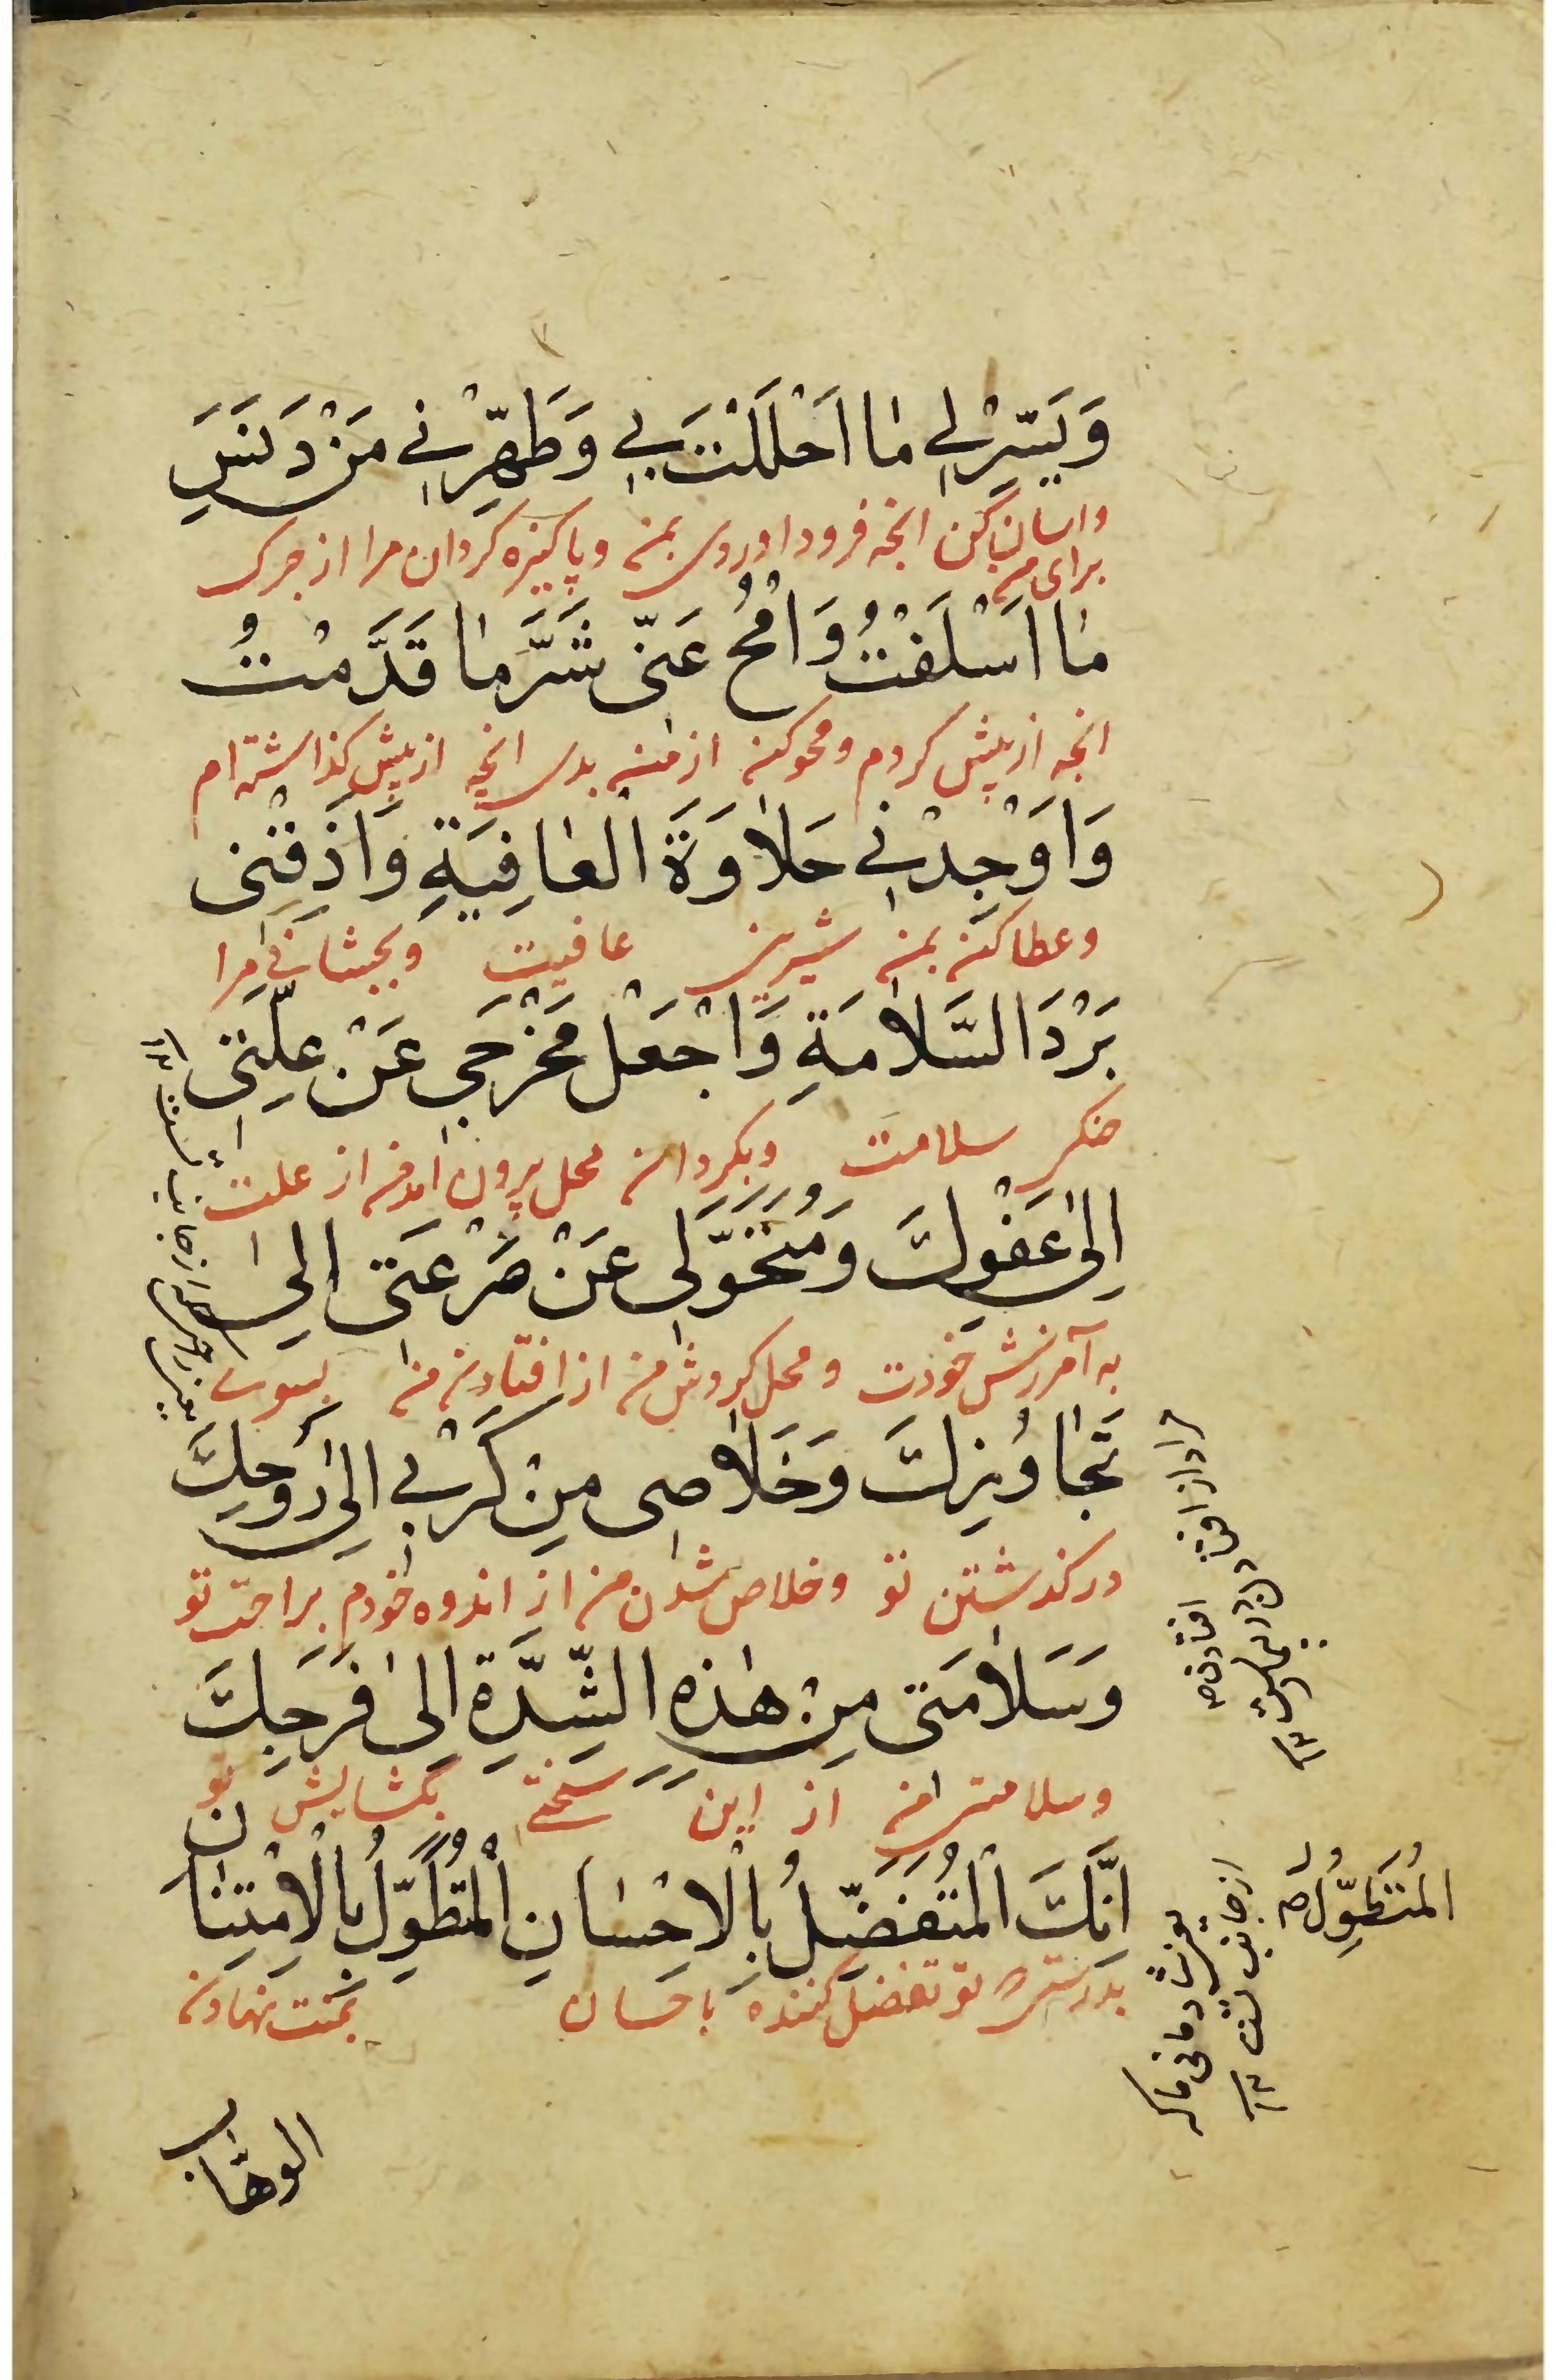 وَيَسِّرْ لِي مٰا اَحْلَلْتَ بِي وَطَهِّرْنِي مِنْ دَنَسِ
واسان کن انچه فرود اوردی بمن و پاکیزه کردان مرا از چرک
برای من
مٰا اَسْلَفْتُ وَامْحُ عَنّي شَرَّ مٰا قَدَّمْتُ
انچه از پیش کردم و محو کن از من بدی انچه از پیش کذاشته ام
وَاَوْجِدْنِي حَلاٰوَةَ الْعٰافِيَةِ وَاَذِقْنِى
و عطا کن بمن شیرینی عافیت و بچشان مرا
بَرْدَ السَّلاٰمَةِ وَاجْعَلْ مَخْرَجِي عَنْ عِلَّتِي
خنکی سلامت و بکردان محل بیرون امدن از علت
اِلىٰ عَفْوِكَ وَمُتَحَوَّلِى عَنْ صَرْعَتِى اِلىٰ
به آمرزش خودت و محل کردش من از افتادن من بسوی
تَجٰاوُزِكَ وَخَلاٰصِى مِنْ كَرْبِي اِلىٰ رَوْحِكَ
درکذشتن تو و خلاص شدن من از اندوه خودم براحت تو
وَسَلاٰمَتِى مِنْ هٰذِهِ الشِّدَّةِ اِلىٰ فَرَجِكَ
و سلامتی من از این سختی بکشایش تو
اِنَّكَ الْمُتَفَضِّلُ بِالْاِحْسٰانِ الْمُتَطَوِّلُ بِالْاِمْتِنٰانِ
بدرستیکه تو تفضل کننده باحسان بمنت نهادن
الوهّاب
مراد از افتادن افتادن در بیماریست ۱۲
الْمُتَطَوِّلُ
از جانب تست ۱۲